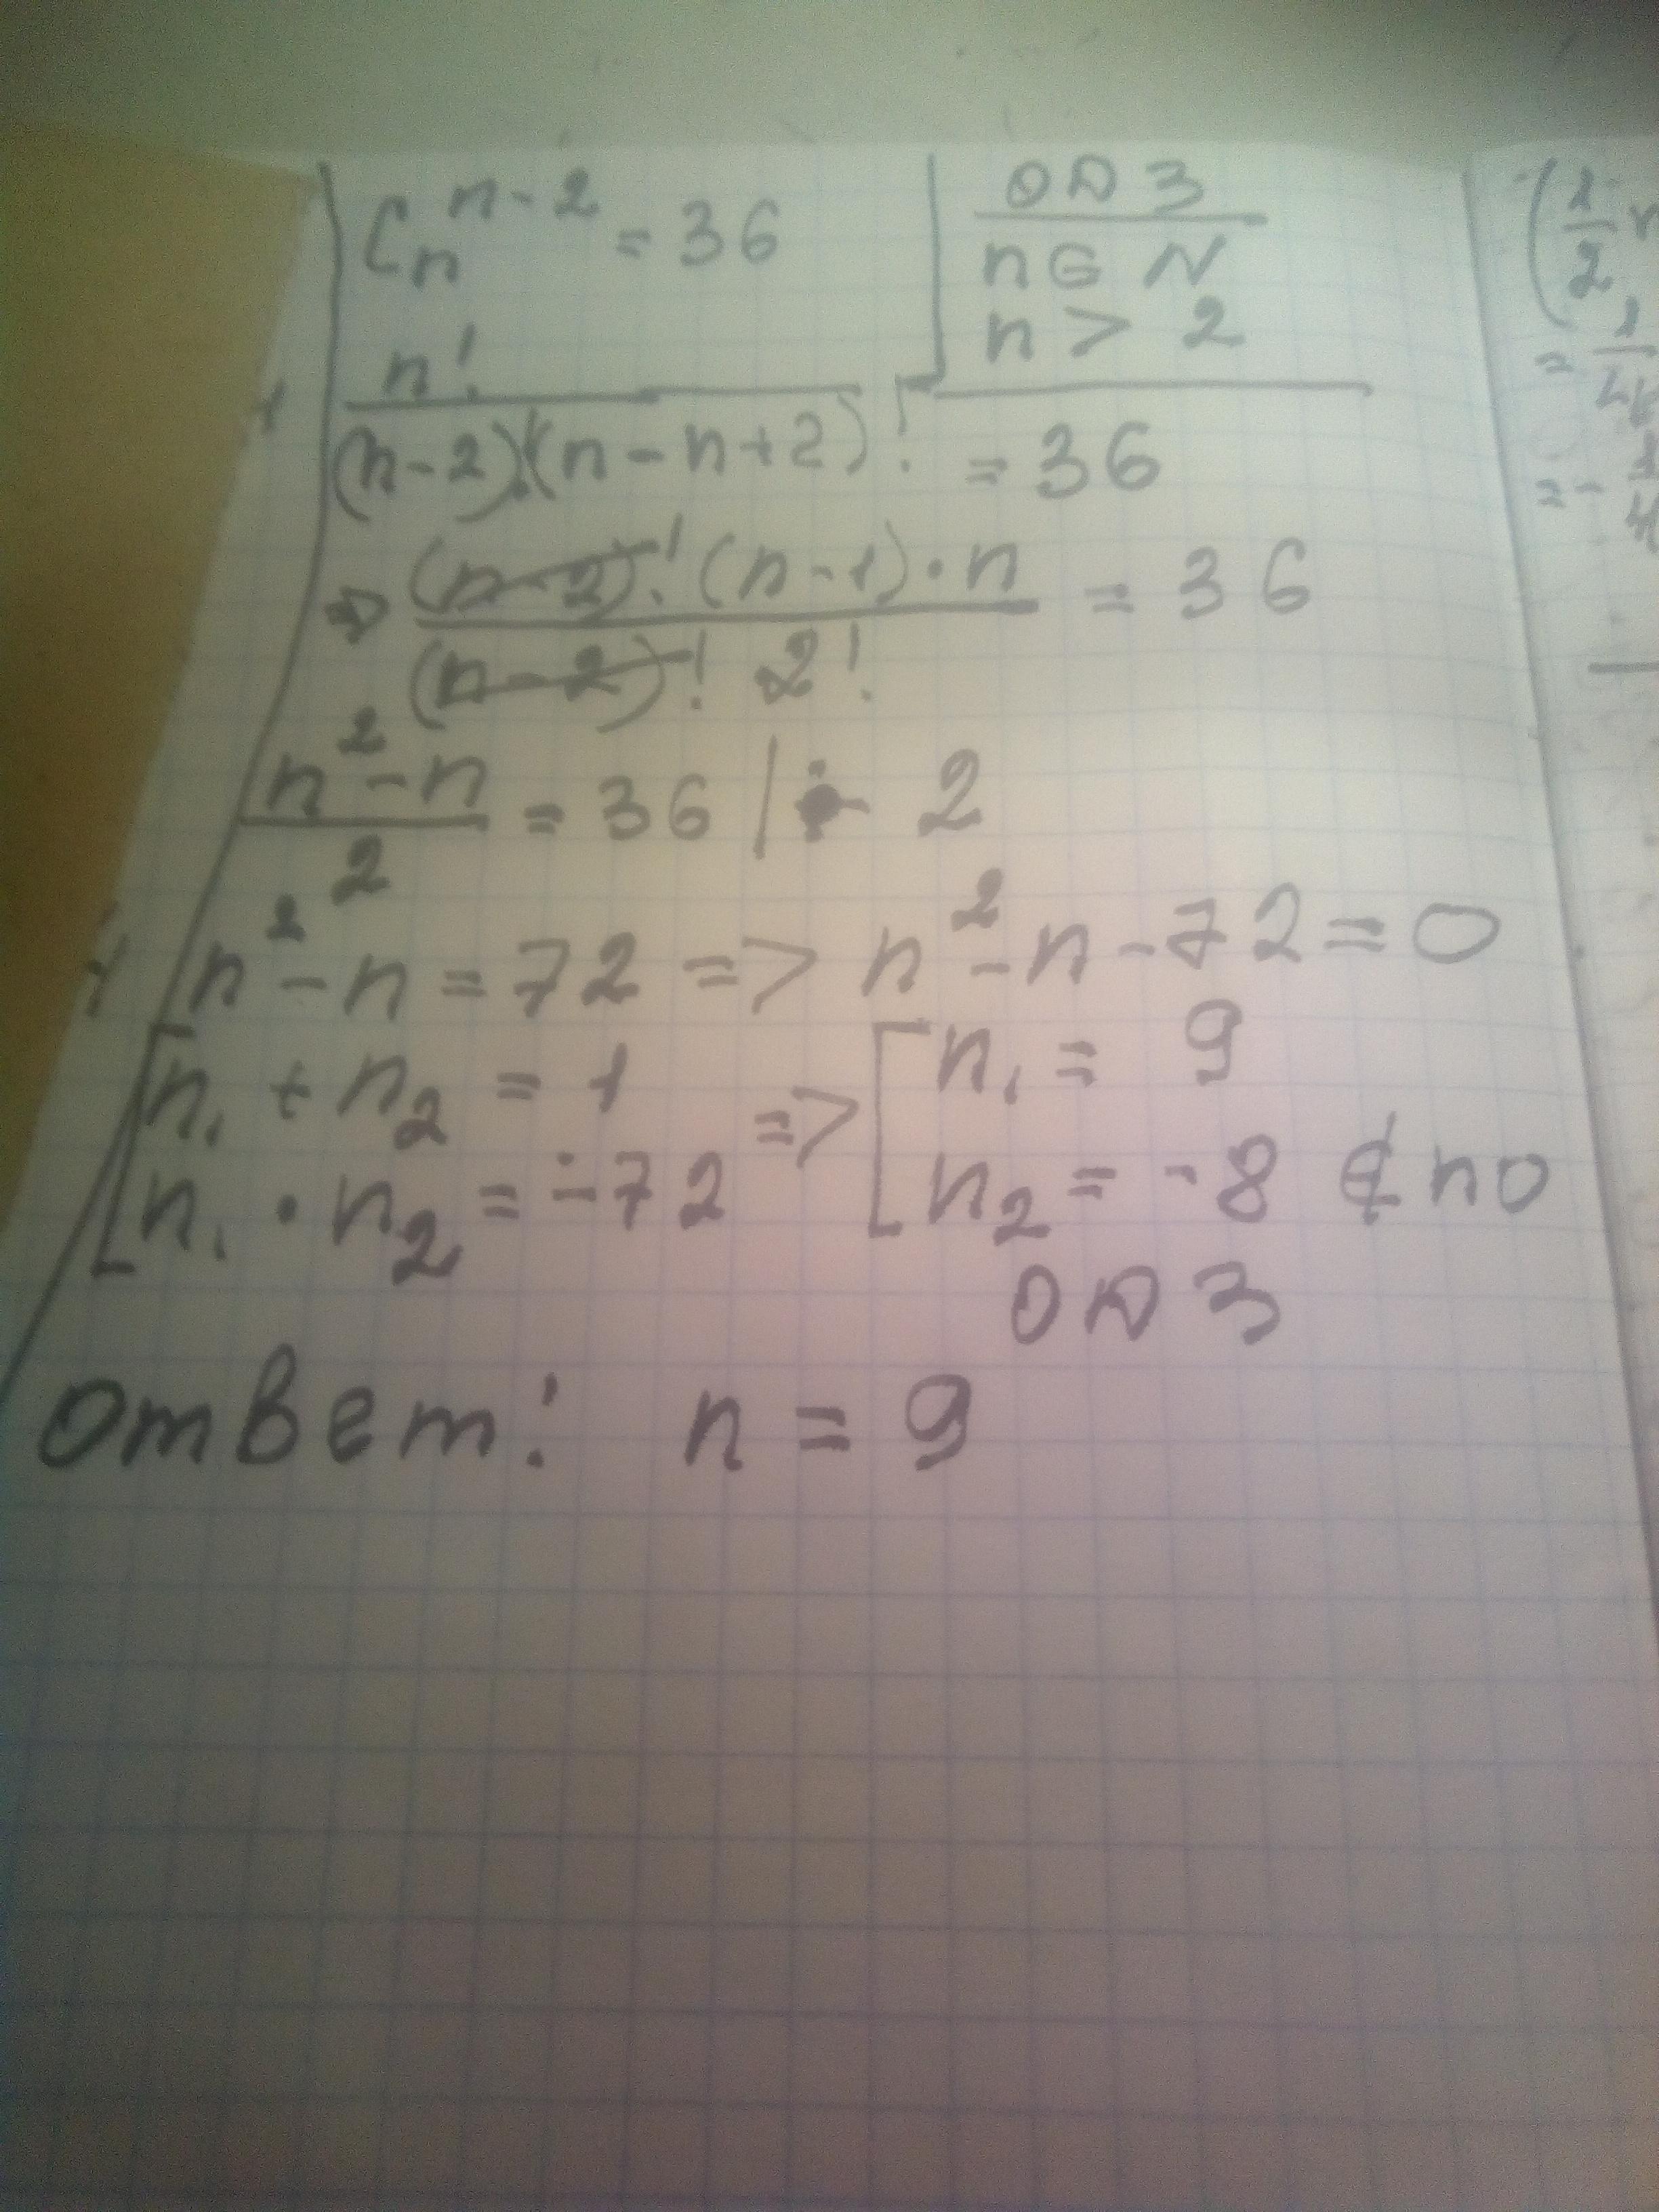 C_n^{n-2} = 36
ОДЗ
n ∈ N
n > 2
n! / (n-2)!(n-n+2)! = 36
=> (n-2)!(n-1)·n / (n-2)! 2! = 36
n²-n / 2 = 36 | · 2
n²-n = 72 => n²-n-72=0
[n₁ + n₂ = 1
n₁ · n₂ = -72
=> [n₁ = 9
n₂ = -8 ∉ по
ОДЗ
Ответ: n = 9
(1/2
=
= -